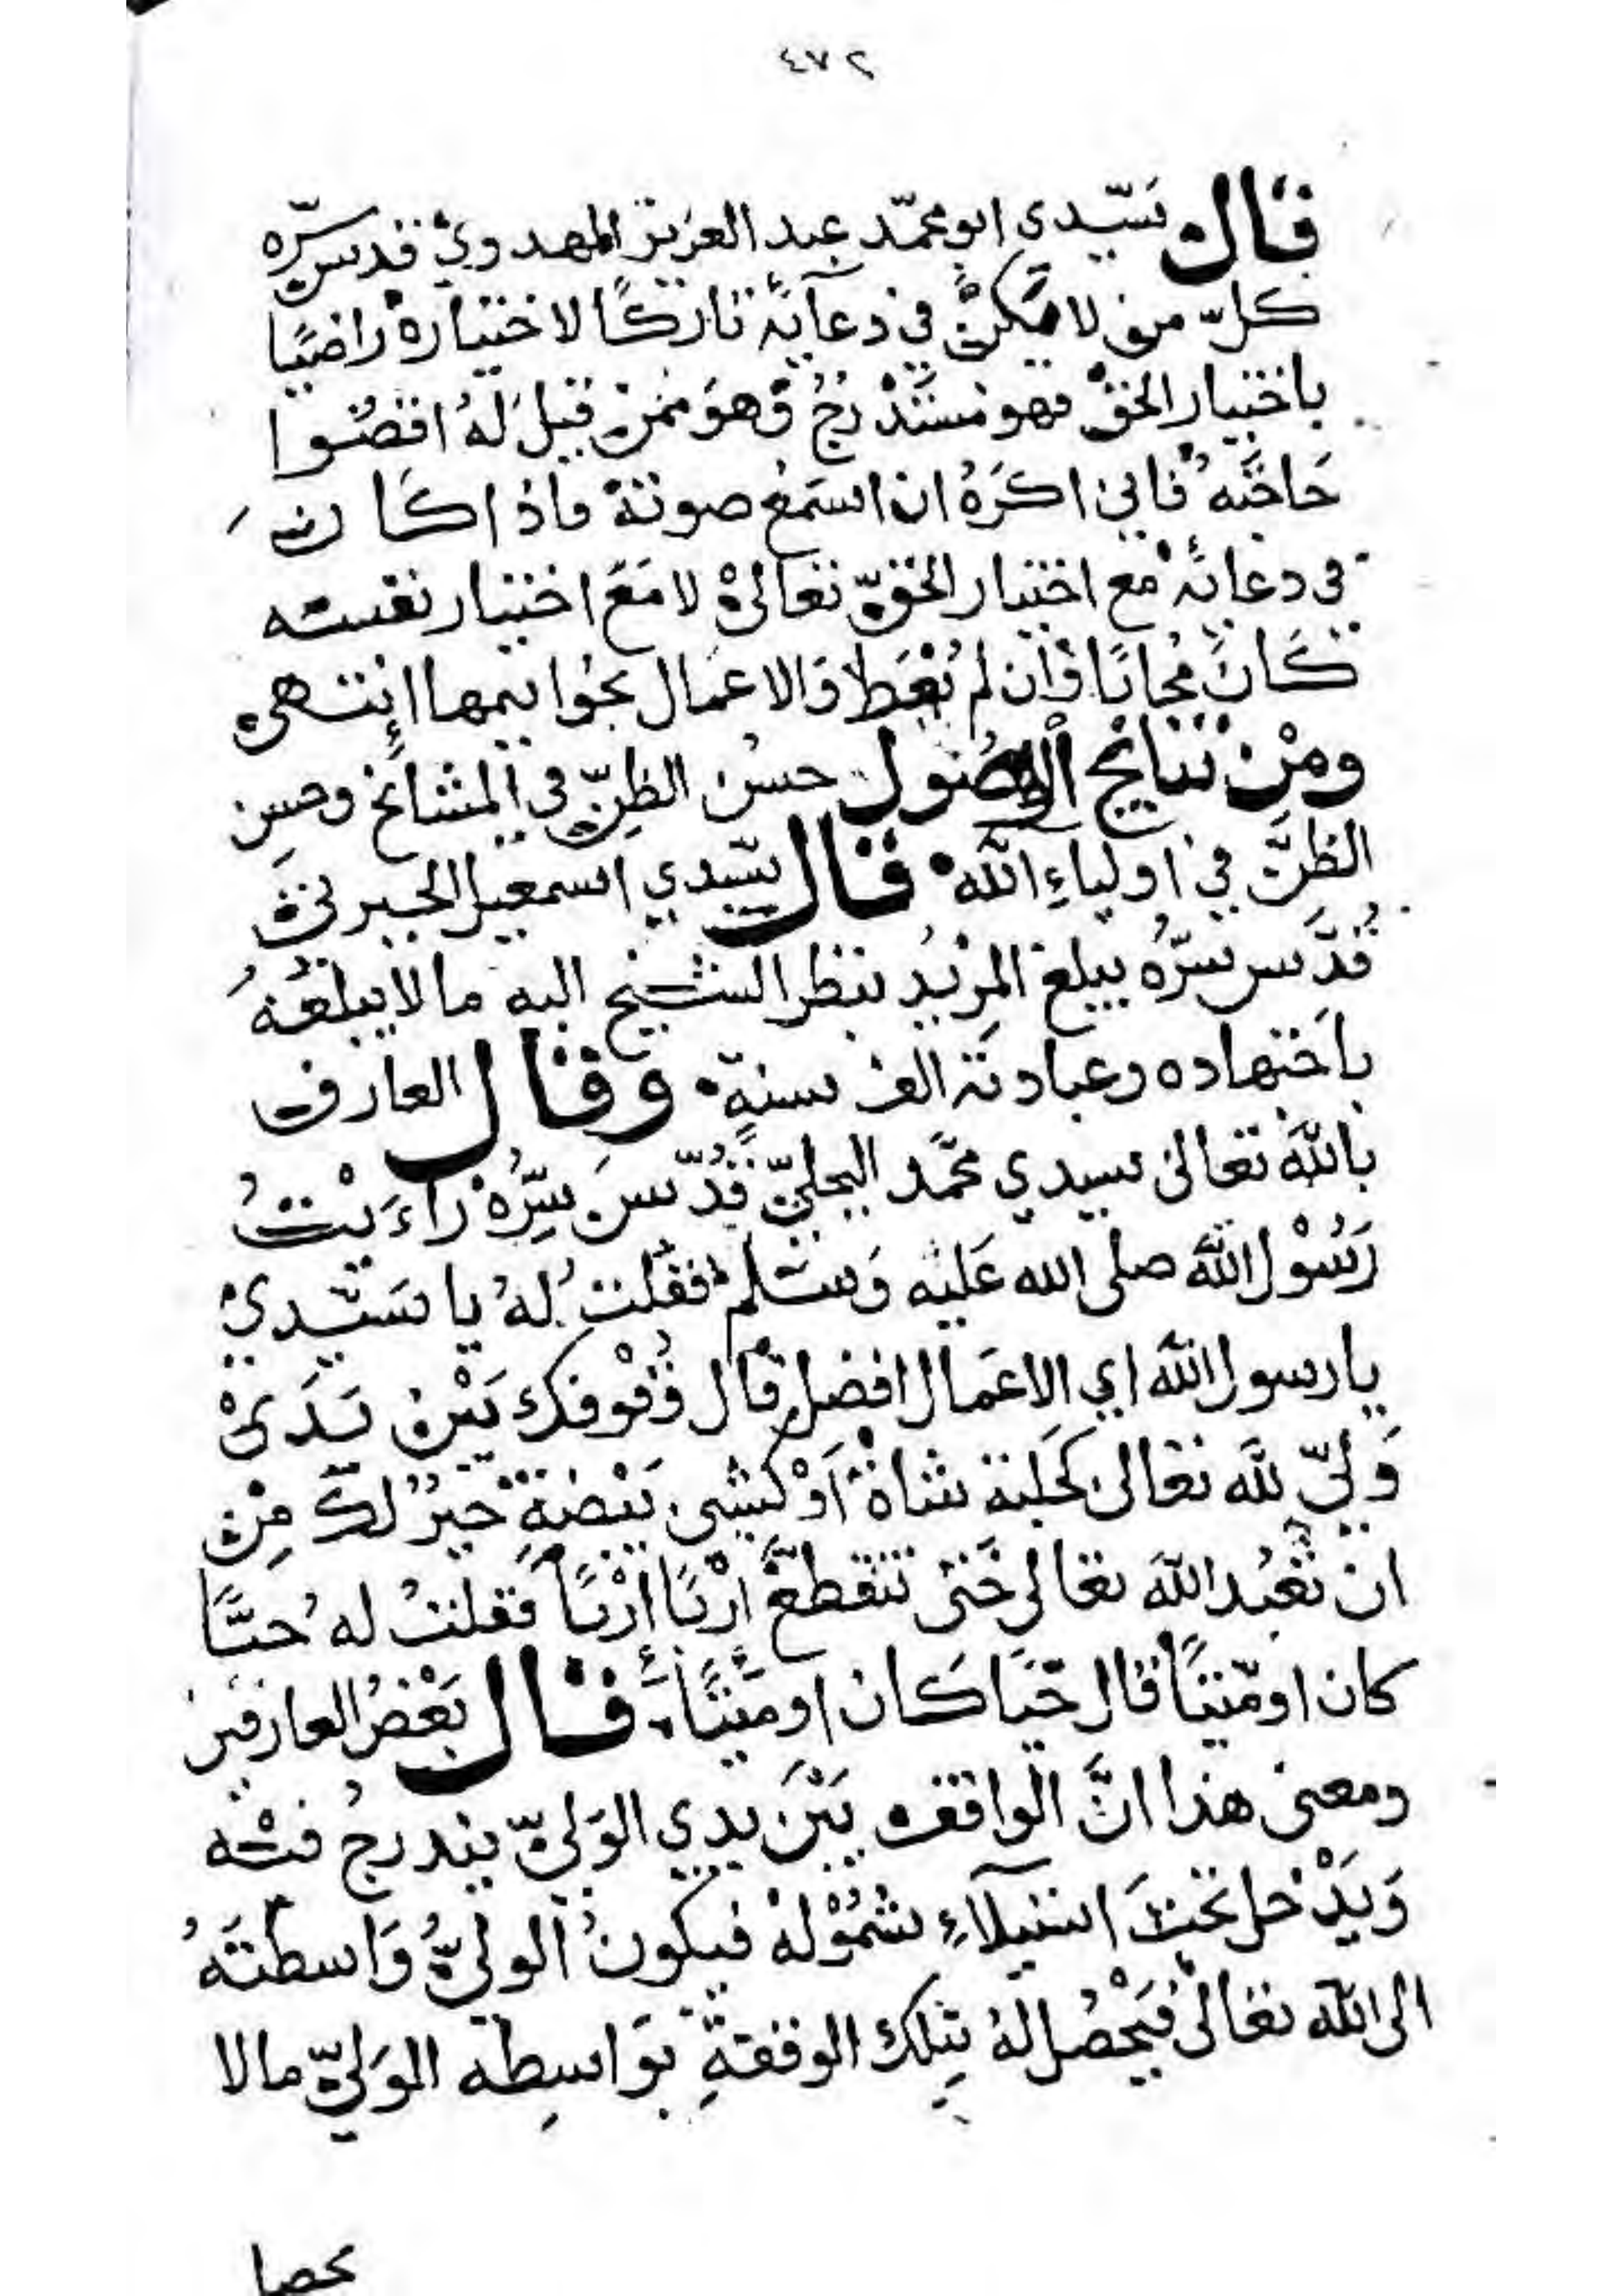 ٤٧٢
قال سيّدي ابو محمّد عبد العزيز المهدويّ قدس سرّه
كلّ من لا يكنّ في دعآئه تاركًا لاختياره راضيًا
باختيار الحق فهو مستدرجُ وهوَ ممن قيلَ لهُ اقضُوا
حَاجتَه فاني اكرَهُ ان اسمَع صوته فاذا كَانَ
في دعائه مع اختيار الحقّ تعالى لا مَعَ اختيار نفسه
كَانَ مُجابًا وَان لم يُعْطَ والاعمَال بخواتيمها انتهى
ومْن نتايج الوصُول حسن الظنّ في المشائخ وحسن
الظنَّ في اوليآءِ الله قال سيّدي اسمعيل الجبرتي
قُدَّس سرّهُ يبلغ المريدُ بنظر الشيخ اليه ما لا يبلغهُ
باجتهاده وعبادته الف سنةٍ وقال العارف
بالله تعالى سيدي محمَّد البجليّ قُدّسَ سِرُّه رَاءَيْتُ
رَسُوْل الله صلى الله عَليْه وَسَلم فقلت لهُ يا سَيّدي
يا رسول الله اي الاعمَال افضل قال وُقوْفك بَيْن يَدَىْ
وَليّ لله تعالى كَحلبة شاة اَوْ كشي بَيْضةٍ خيرٌ لكَ مِنْ
ان تعْبُد الله تعالى حَتى تتقطعَ اِرْبًا اِرْبًا فقلتُ له حيًّا
كان او ميّتًا قال حيًّا كَان او ميّتًا قال بَعْضُ العارفين
ومعنى هذا انَّ الواقف بَيْنَ يدي الوَليّ يندرجُ فيه
وَيَدْخل تحْتَ استيلآءِ شمُوْله فيكونُ الوليُّ وَاسطتَهُ
الى الله تعالى فيَحْصُل لهُ بتلكِ الوقفةِ بوَاسِطه الوَليّ ما لا
يحصل